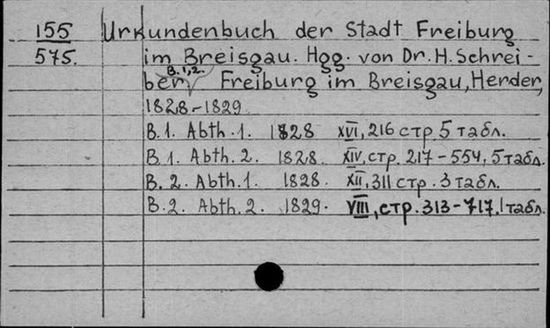 155 Urkundenbuch der Stadt Freiburg
575. im Breisgau. Hgg. von Dr. H. Schrei-
B. 1, 2.
ber Freiburg im Breisgau, Herder,
1828-1829
B. 1. Abth. 1. 1828 XVI, 216 стр. 5 табл.
B. 1. Abth. 2. 1828. XIV, стр. 217-554, 5 табл.
B. 2. Abth. 1. 1828. XII, 311 стр. 3 табл.
B. 2. Abth. 2. 1829. VIII, стр. 313-717. 1 табл.